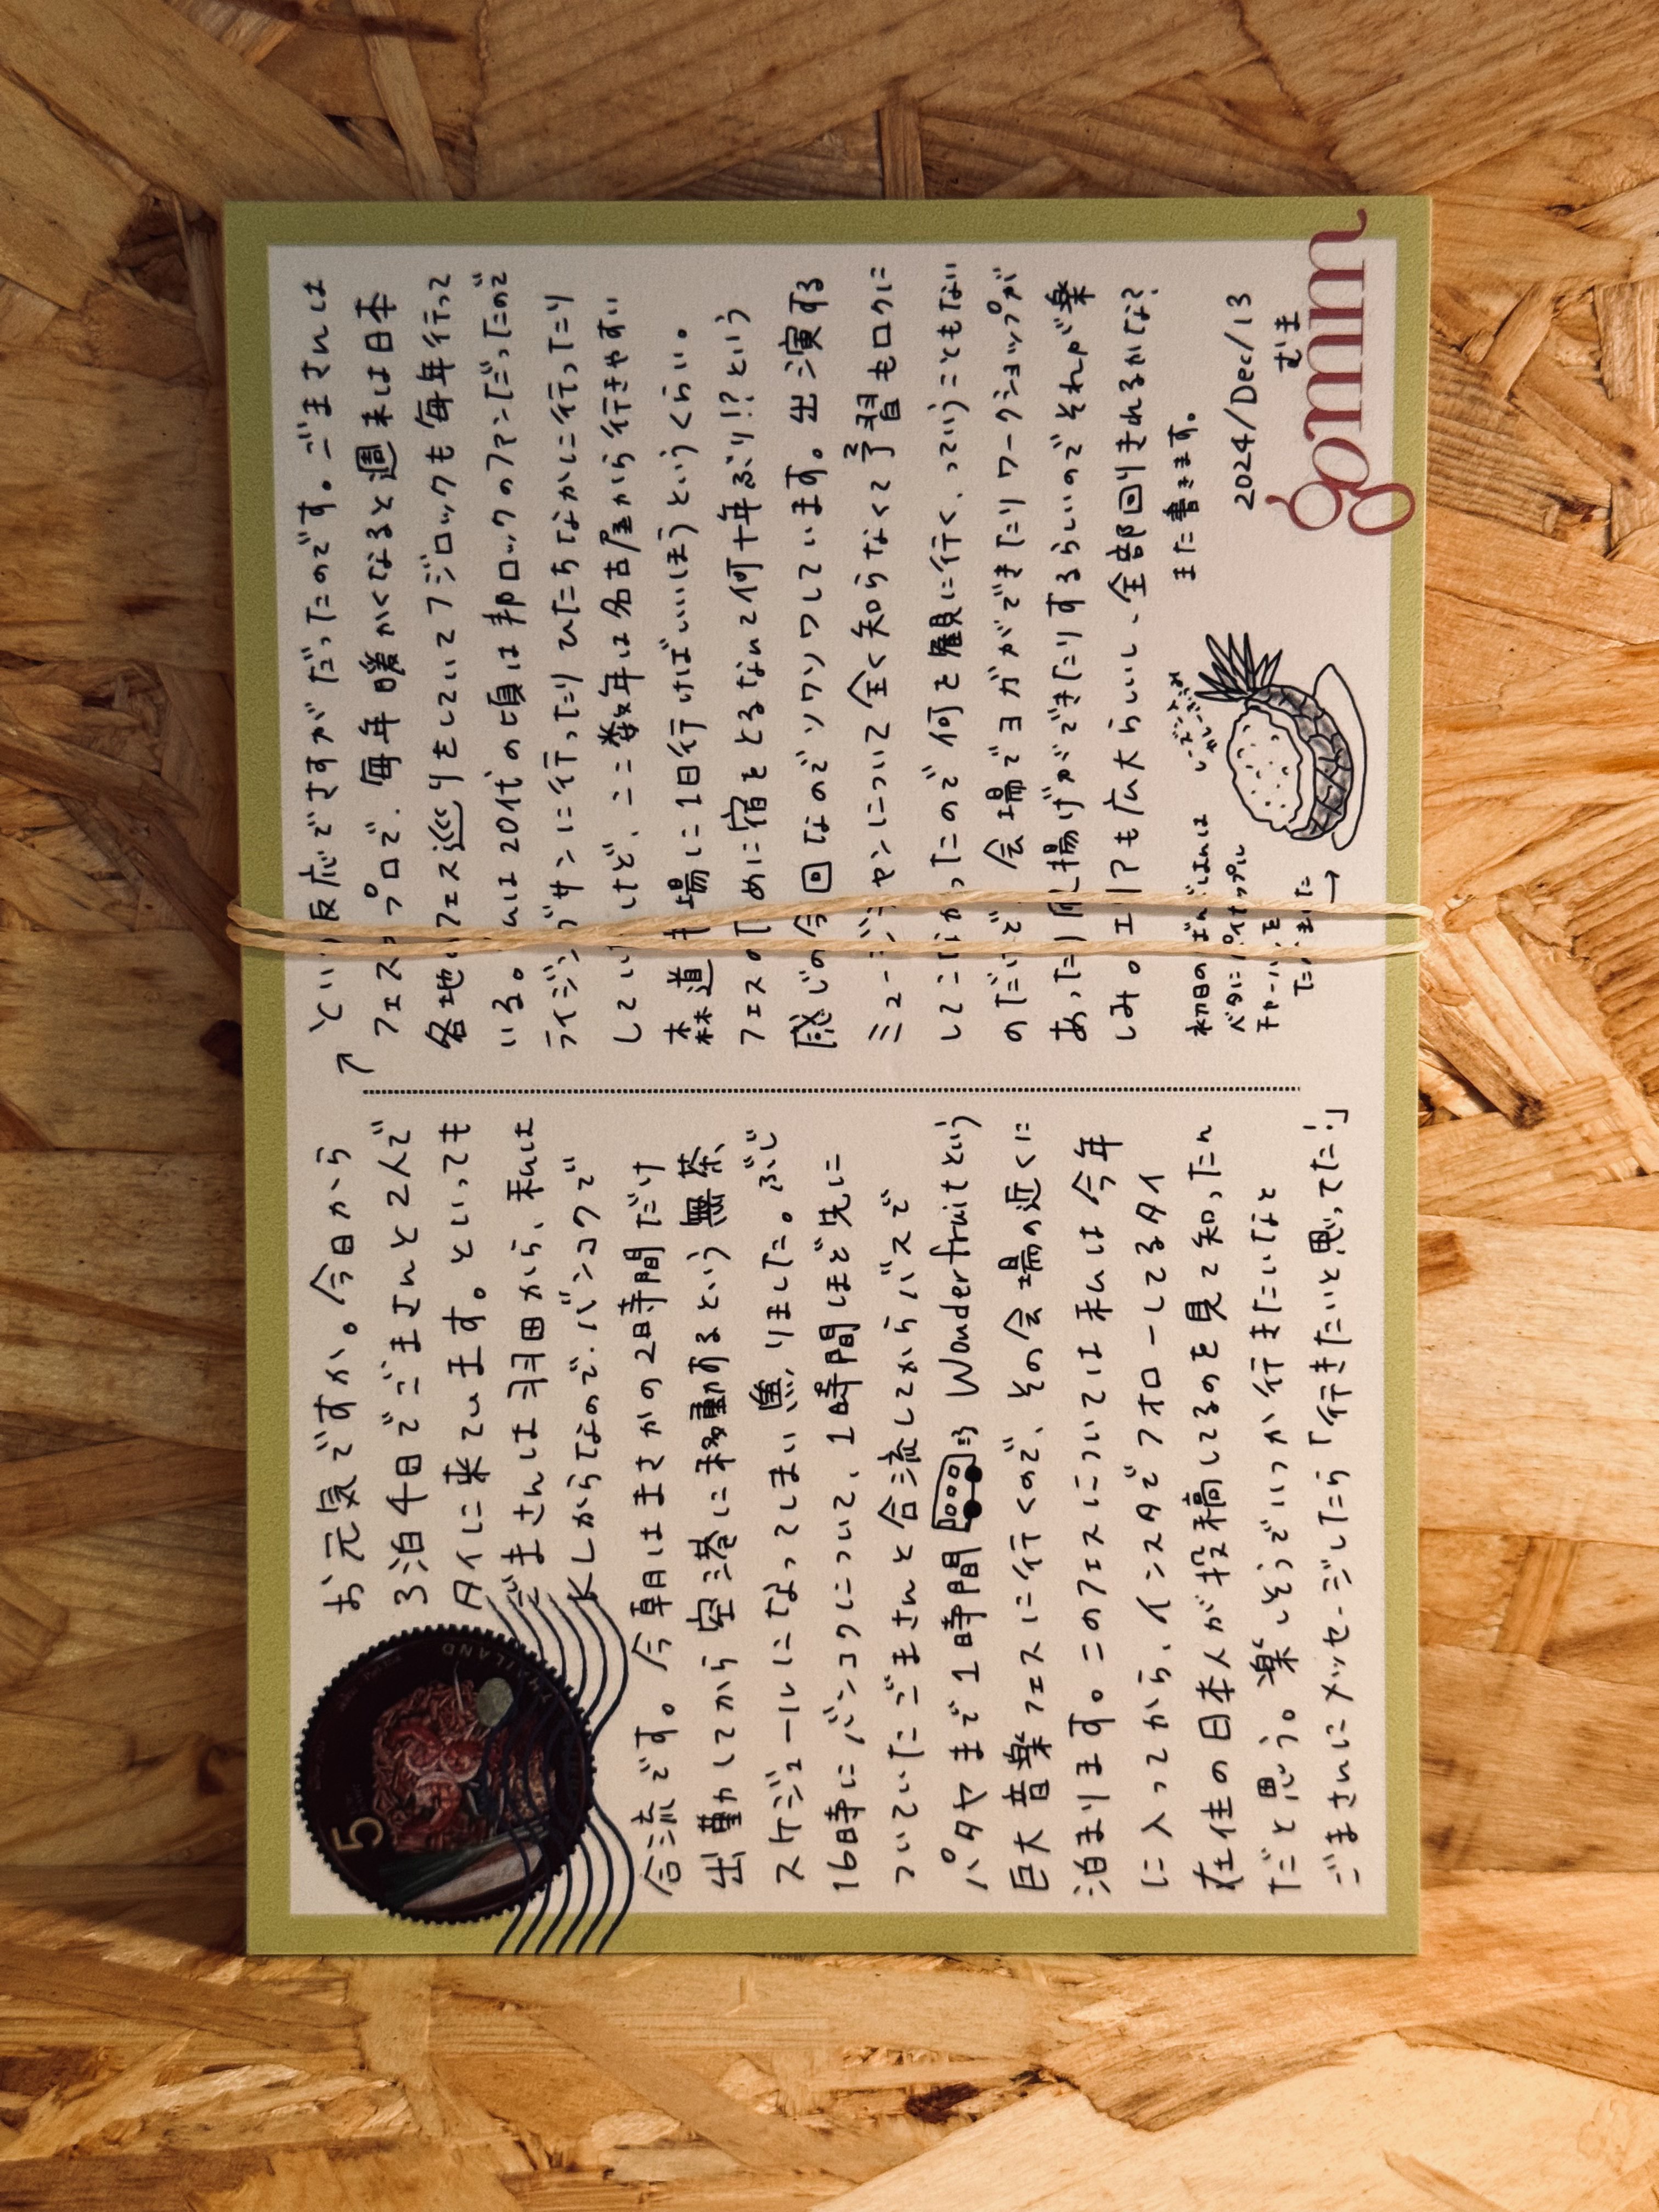 お元気ですか。今日から
3泊4日でごまさんと2人で
タイに来ています。といっても
ごまさんは羽田から、私は
KLからなので、バンコクで
合流です。今朝はまさかの2時間だけ
出勤してから空港に移動するという無茶
スケジュールになってしまい焦りました。ぶじ
16時にバンコクについて、1時間ほど先に
ついていたごまさんと合流してからバスで
パタヤまで1時間 Wonderfruitという
巨大音楽フェスに行くので、その会場の近くに
泊まります。このフェスについては私は今年
に入ってから、インスタでフォローしてるタイ
在住の日本人が投稿してるのを見て知ったん
だと思う。楽しそうでいつか行きたいなと
ごまさんにメッセージしたら「行きたいと思ってた!」
↗という反応でさすがだったのです。ごまさんは
フェスのプロで、毎年暖かくなると週末は日本
各地のフェス巡りをしていてフジロックも毎年行って
いる。私は20代の頃は邦ロックのファンだったので
ライジングサンに行ったりひたちなかに行ったり
していたけど、ここ数年は名古屋から行きやすい
森道市場に1日行けばいいほうというくらい。
フェスのために宿をとるなんて何十年ぶり!?という
感じの今回なのでソワソワしています。出演する
ミュージシャンについて全く知らなくて予習もロクに
してこなかったので何を観に行く、っていうこともない
のだけど、会場でヨガができたりワークショップが
あったり凧揚げができたりするらしいのでそれが楽
しみ。エリアも広大らしいし、全部回りきれるかな?
また書きます。
初日のばんごはんは
ベタにパイナップル
チャーハンを
たべました
→
いーズリスト
2024/Dec/13
むま
gomm
5
THAILAND